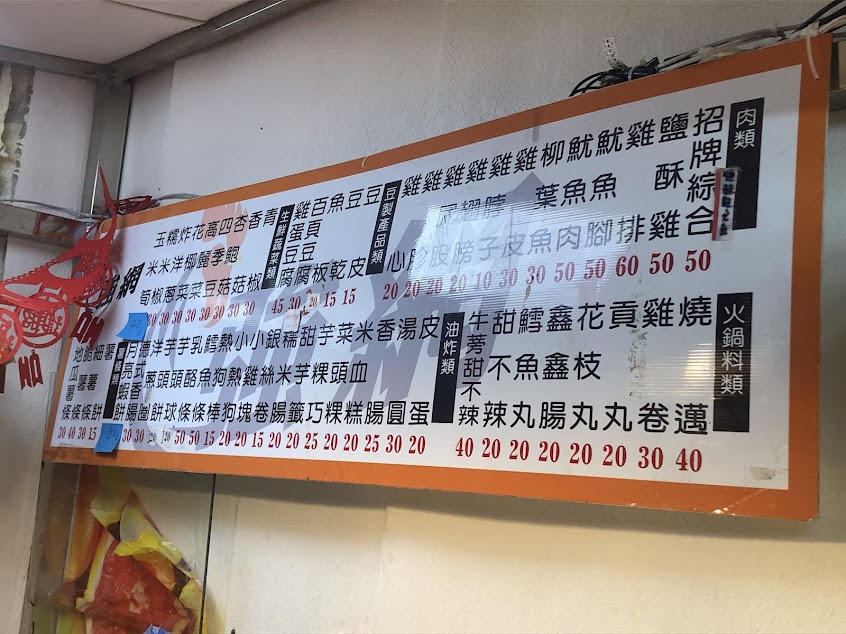 肉類
招牌綜合 50
鹽酥雞 50
雞排 60
魷魚腳 50
魷魚肉 50
柳葉魚 30
雞皮 30
雞脖子 10
雞翅膀 20
雞屁股 20
雞胗 20
雞心 20
豆製產品類
豆皮 15
豆乾 15
魚板
百頁豆腐 30
雞蛋豆腐 45
生鮮蔬菜類
青椒 30
香菇 30
杏鮑菇 30
四季豆 30
高麗菜 30
花椰菜 30
炸洋蔥 30
糯米椒 30
玉米筍 30
網
火鍋料類
燒邁 40
雞卷 30
貢丸 20
花枝丸 20
鑫鑫腸 20
鱈魚丸 20
甜不辣 20
牛蒡甜不辣 40
油炸類
皮蛋 20
湯圓 30
香腸 25
米血糕 20
菜頭粿 20
芋粿巧 20
甜芋籤 25
糯米腸 20
銀絲卷 20
小雞塊 15
小熱狗 20
熱狗棒 20
鱈魚條 15
乳酪條 50
芋頭球 50
芋頭餅
洋蔥圈
德式香腸 30
月亮蝦餅 30
薯餅 15
細薯條 30
脆薯條 40
地瓜薯條 30